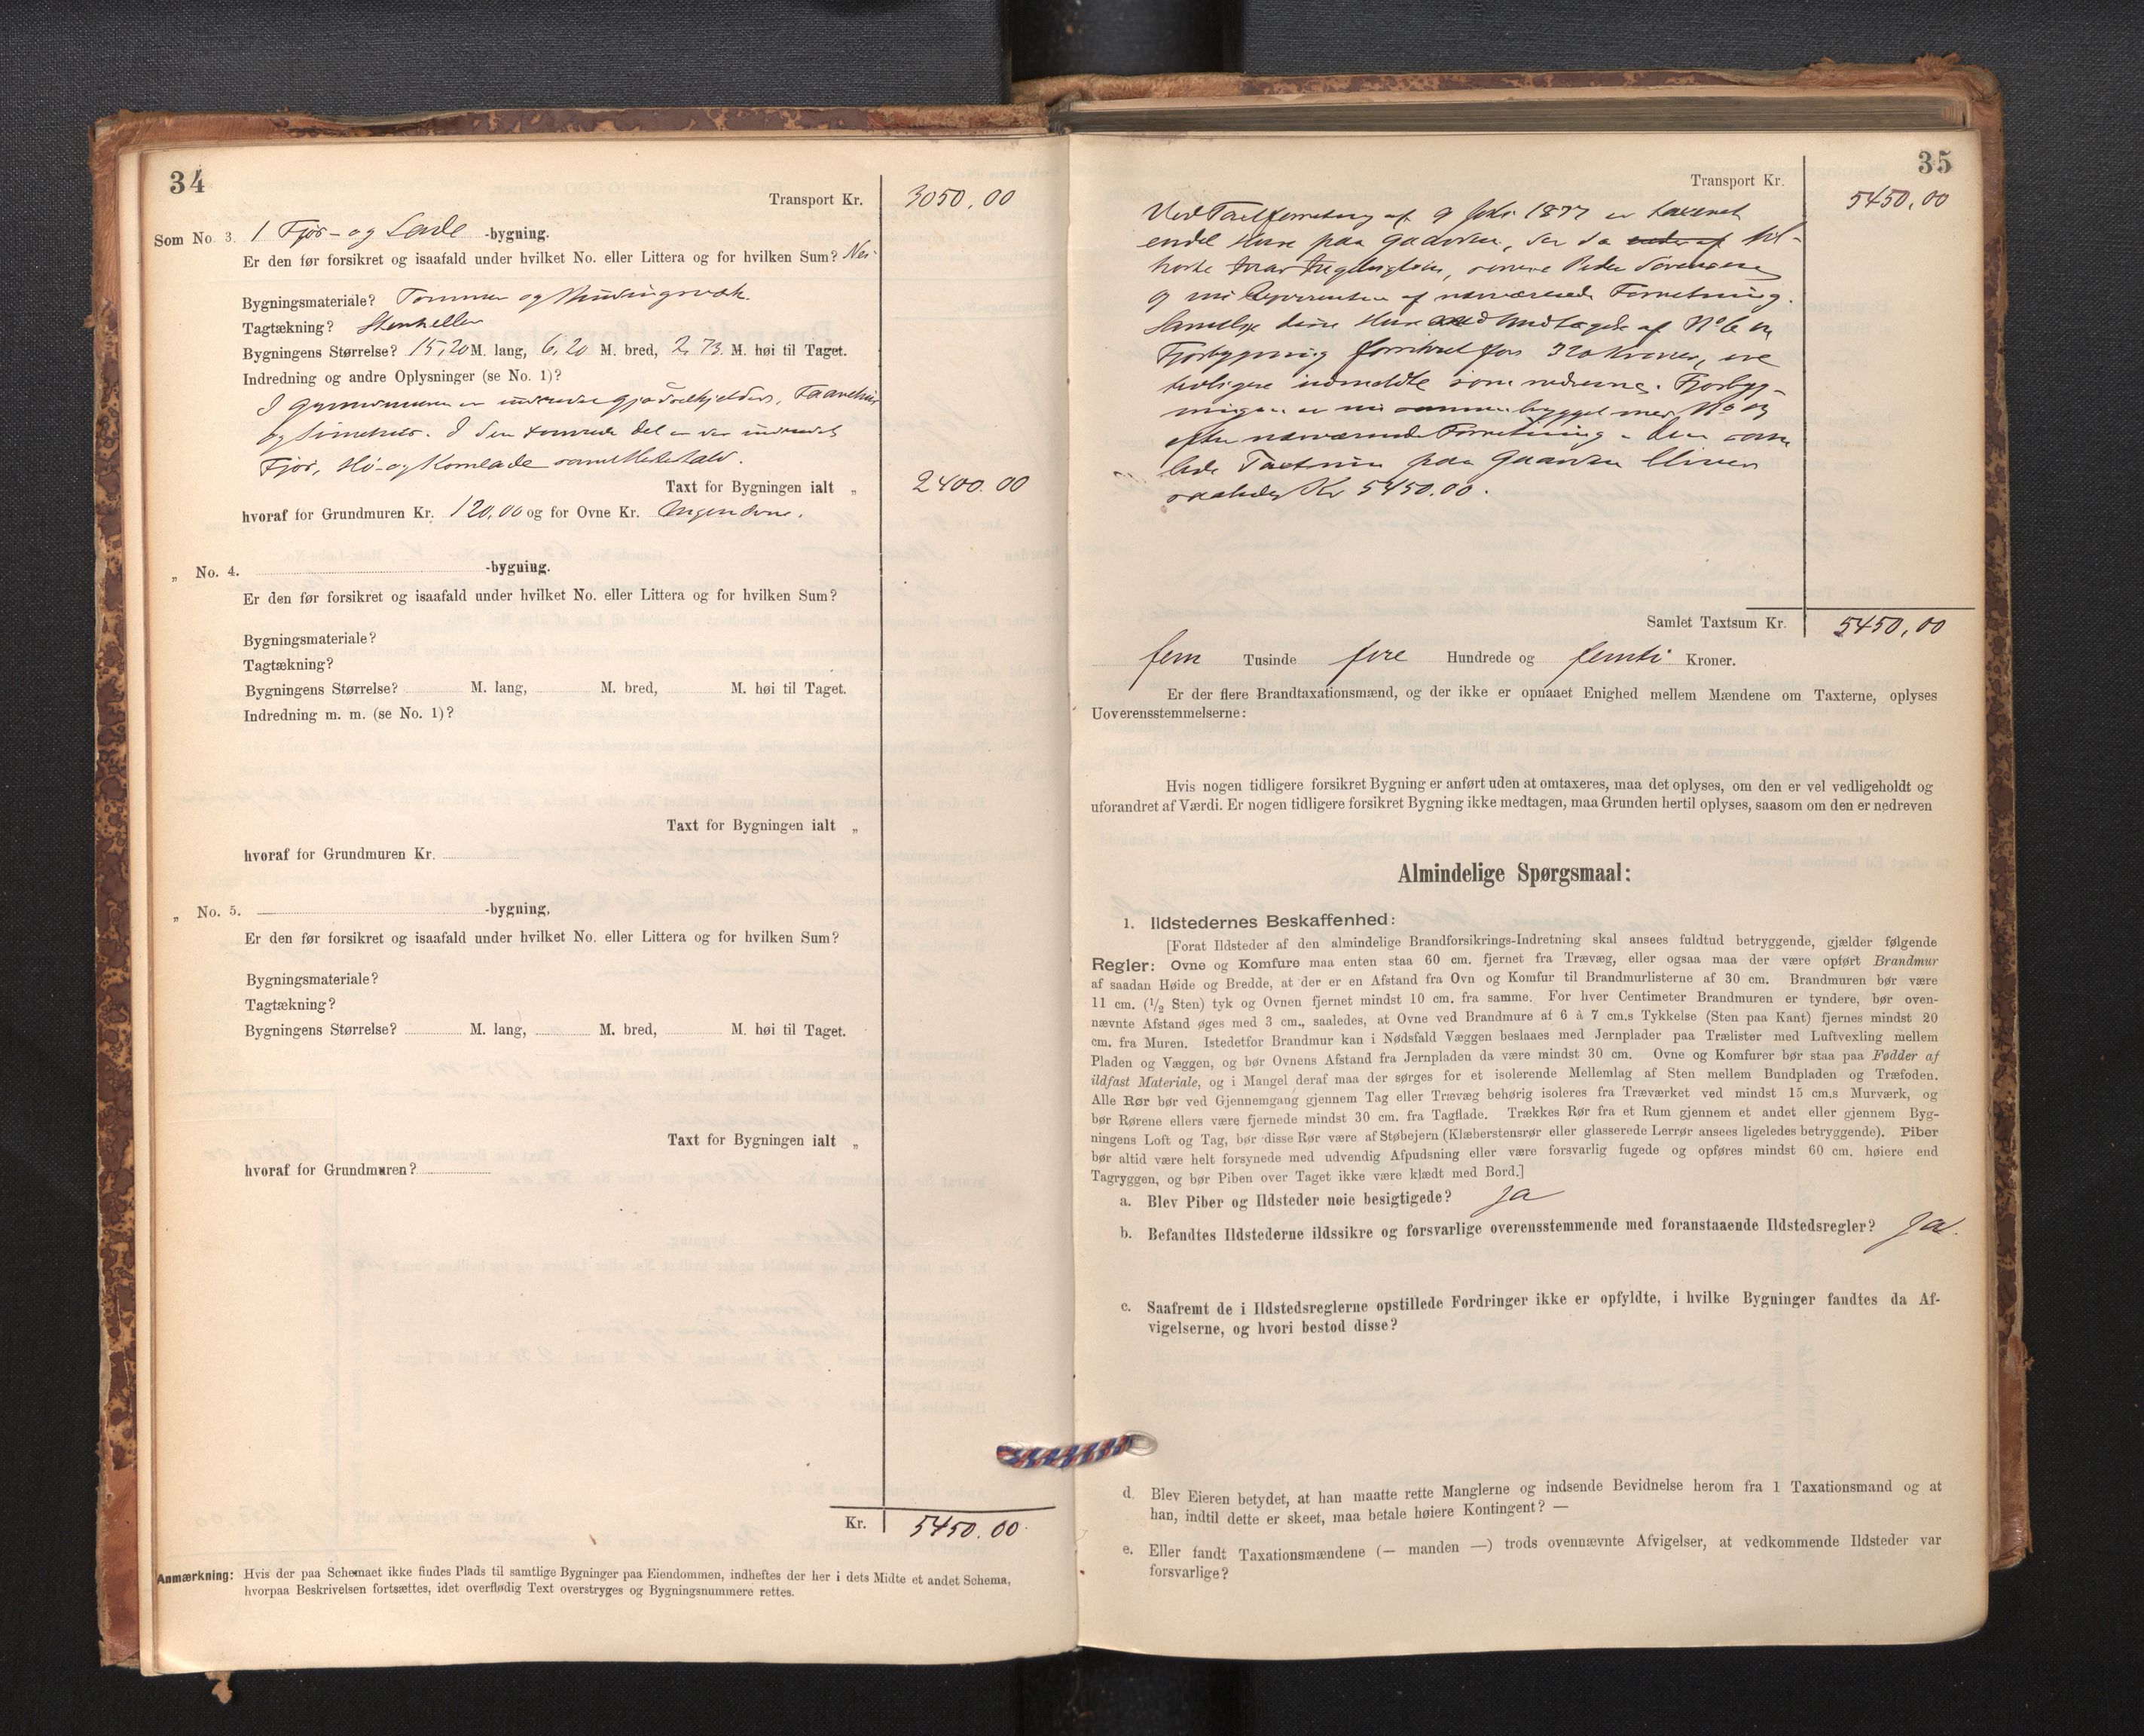 34
Transport Kr. 3050,00
Som No. 3. 1 Fjøs- og Lade -bygning.
Er den før forsikret og isaafald under hvilket No. eller Littera og for hvilken Sum? Nei
Bygningsmateriale? Tømmer og Bindingsværk.
Tagtækning? Stenheller
Bygningens Størrelse? 15,20 M. lang, 6,20 M. bred, 2,73 M. høi til Taget.
Indredning og andre Oplysninger (se No. 1)?
I Grundmuren er indredet gjødselkjelder, Faarehus
og . I den tømrede Del er der indredet
Fjøs, Hø- og Kornlade samt Hestestald.
Taxt for Bygningen ialt „ 2400.00
hvoraf for Grundmuren Kr. 120,00 og for Ovne Kr. Ingen Ovne.
„ No. 4. -bygning.
Er den før forsikret og isaafald under hvilket No. eller Littera og for hvilken Sum?
Bygningsmateriale?
Tagtækning?
Bygningens Størrelse? M. lang, M. bred, M. høi til Taget.
Indredning m. m. (se No. 1)?
Taxt for Bygningen ialt „
hvoraf for Grundmuren Kr.
„ No. 5. -bygning,
Er den før forsikret og isaafald under hvilket No. eller Littera og for hvilken Sum?
Bygningsmateriale?
Tagtækning?
Bygningens Størrelse? M. lang, M. bred, M. høi til Taget.
Taxt for Bygningen ialt „
hvoraf for Grundmuren?
Kr. 5450.00
Anmærkning: Hvis der paa Schemaet ikke findes Plads til samtlige Bygninger paa Eiendommen, indheftes der her i dets Midte et andet Schema,
hvorpaa Beskrivelsen fortsættes, idet overflødig Text overstryges og Bygningsnummere rettes.
35
Transport Kr. 5450,00
Ved Taxtforretning af 9 Juli 1877 er taxeret
endel Huse paa Gaarden, der da til-
hørte , senere Peder Sørensen
og nu Rekvirenten af nærværende Forretning.
Samtlige disse Huse med Undtagelse af No 6 en
Fjøsbygning forsikret for 320 Kroner, ere
tidligere indmeldte som nedrevne. Fjøsbyg-
ningen er nu sammenbygget med No 3
efter nærværende Forretning - Den sam-
lede Taxtsum paa Gaarden bliver
saaledes Kr 5450.00.
Samlet Taxtsum Kr. 5450,00
fem Tusinde fire Hundrede og femti Kroner.
Er der flere Brandtaxationsmænd, og der ikke er opnaaet Enighed mellem Mændene om Taxterne, oplyses
Uoverensstemmelserne:
Hvis nogen tidligere forsikret Bygning er anført uden at omtaxeres, maa det oplyses, om den er vel vedligeholdt og
uforandret af Værdi. Er nogen tidligere forsikret Bygning ikke medtagen, maa Grunden hertil oplyses, saasom om den er nedreven
Almindelige Spørgsmaal:
1. Ildstedernes Beskaffenhed:
[Forat Ildsteder af den almindelige Brandforsikrings-Indretning skal ansees fuldtud betryggende, gjælder følgende
Regler: Ovne og Komfure maa enten staa 60 cm. fjernet fra Trævæg, eller ogsaa maa der være opført Brandmur
af saadan Høide og Bredde, at der er en Afstand fra Ovn og Komfur til Brandmurlisterne af 30 cm. Brandmuren bør være
11 cm. (1/2 Sten) tyk og Ovnen fjernet mindst 10 cm. fra samme. For hver Centimeter Brandmuren er tyndere, bør oven-
nævnte Afstand øges med 3 cm., saaledes, at Ovne ved Brandmure af 6 à 7 cm.s Tykkelse (Sten paa Kant) fjernes mindst 20
cm. fra Muren. Istedetfor Brandmur kan i Nødsfald Væggen beslaaes med Jernplader paa Trælister med Luftvexling mellem
Pladen og Væggen, og bør Ovnens Afstand fra Jernpladen da være mindst 30 cm. Ovne og Komfurer bør staa paa Fødder af
ildfast Materiale, og i Mangel deraf maa der sørges for et isolerende Mellemlag af Sten mellem Bundpladen og Træfoden.
Alle Rør bør ved Gjennemgang gjennem Tag eller Trævæg behørig isoleres fra Træværket ved mindst 15 cm.s Murværk, og
bør Rørene ellers være fjernede mindst 30 cm. fra Tagflade. Trækkes Rør fra et Rum gjennem et andet eller gjennem Byg-
ningens Loft og Tag, bør disse Rør være af Støbejern (Klæberstensrør eller glasserede Lerrør ansees ligeledes betryggende). Piber
bør altid være helt forsynede med udvendig Afpudsning eller være forsvarlig fugede og opføres mindst 60 cm. høiere end
Tagryggen, og bør Piben over Taget ikke være klædt med Bord.]
a. Blev Piber og Ildsteder nøie besigtigede? Ja
b. Befandtes Ildstederne ildssikre og forsvarlige overensstemmende med foranstaaende Ildstedsregler? Ja.
c. Saafremt de i Ildstedsreglerne opstillede Fordringer ikke er opfyldte, i hvilke Bygninger fandtes da Af-
vigelserne, og hvori bestod disse?
d. Blev Eieren betydet, at han maatte rette Manglerne og indsende Bevidnelse herom fra 1 Taxationsmand og at
han, indtil dette er skeet, maa betale høiere Kontingent? —
e. Eller fandt Taxationsmændene (— manden —) trods ovennævnte Afvigelser, at vedkommende Ildsteder var
forsvarlige?